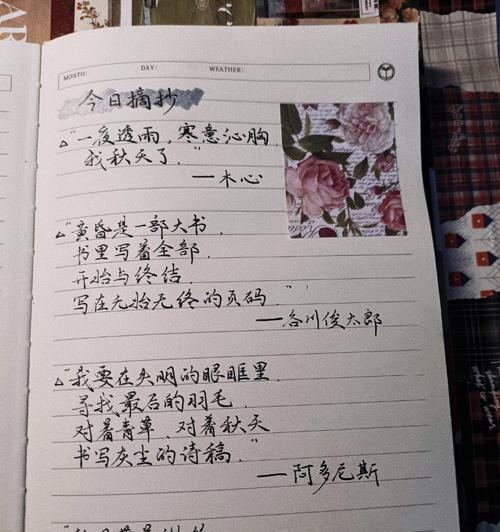 MONTH: DAY: WEATHER:
今日摘抄
"一夜透雨，寒意沁胸，
我秋天了."
——木心
"黄昏是一部大书.
书里写着全部.
开始与终结
写在无始无终的页码."
——谷川俊太郎
"我要在失明的眼眶里.
寻找最后的羽毛.
对着青草.对着秋天
书写灰尘的诗稿."
——阿多尼斯